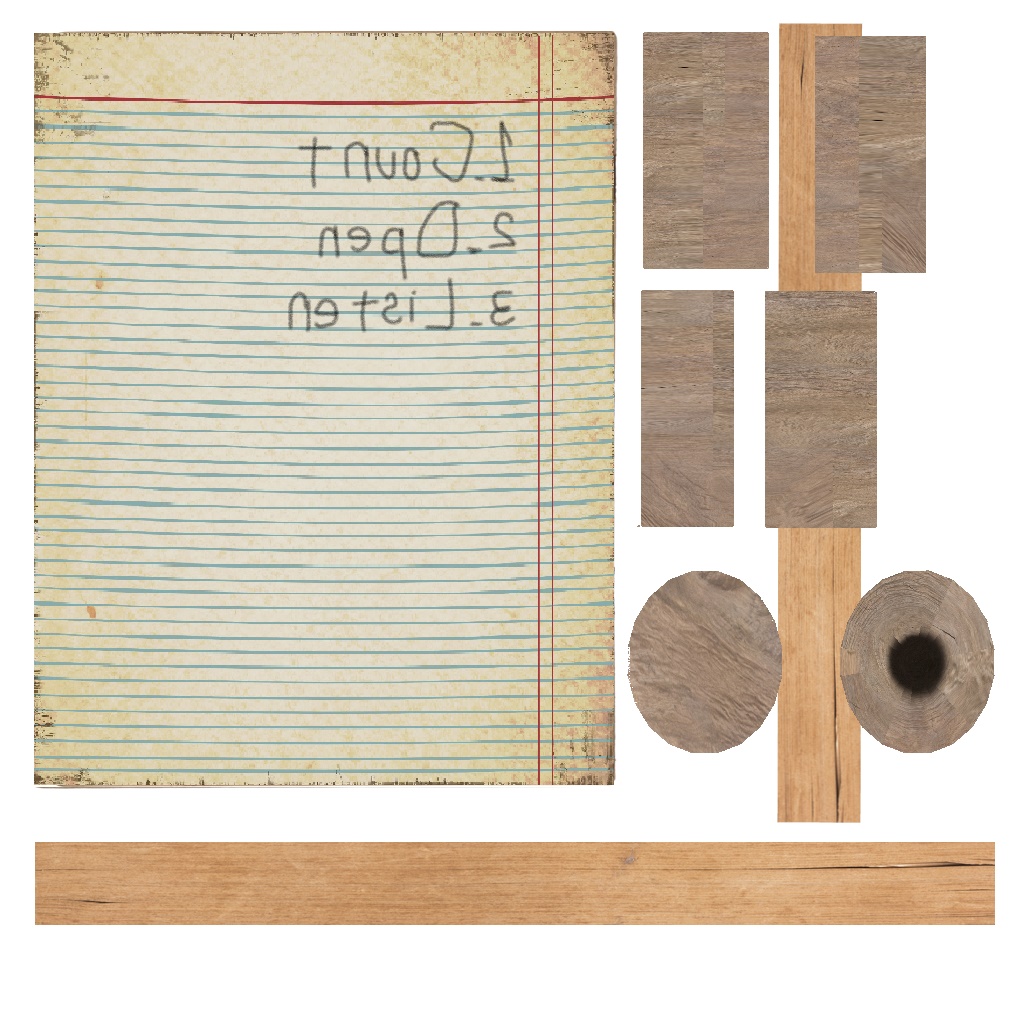 1. Count
2. Open
3. Listen